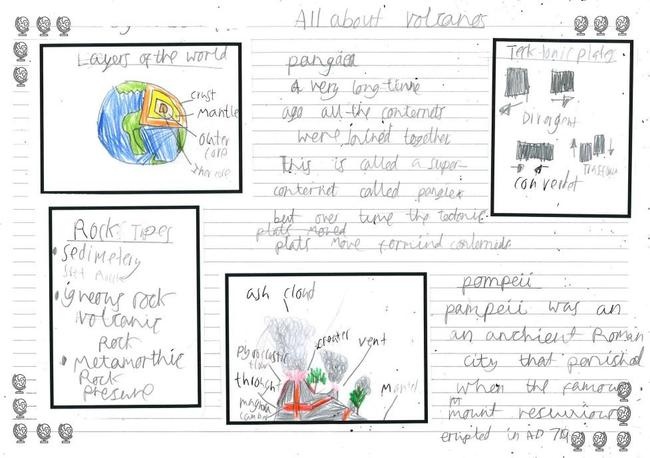 All about volcanoes
Layers of the world
crust
Mantle
Outer
core
pangaea
A very long time
ago all the conternets
were joined together
This is called a super-
conternet called pangiea
but over time the tectonic
plats moved
plats move formind conternents
Tecktonic plates
Divergent
convendt
Rock Types
• Sedimetery
• igneous rock
Volcanic
Rock
• Metamorthic
Rock
presure
ash cloud
craeter
vent
Pyroclastic
flow
throught
magma
camber
pompeii
pampeii was an
an anchient Roman
city that perished
when the famous
mount vesuviours
erupted in AD 79